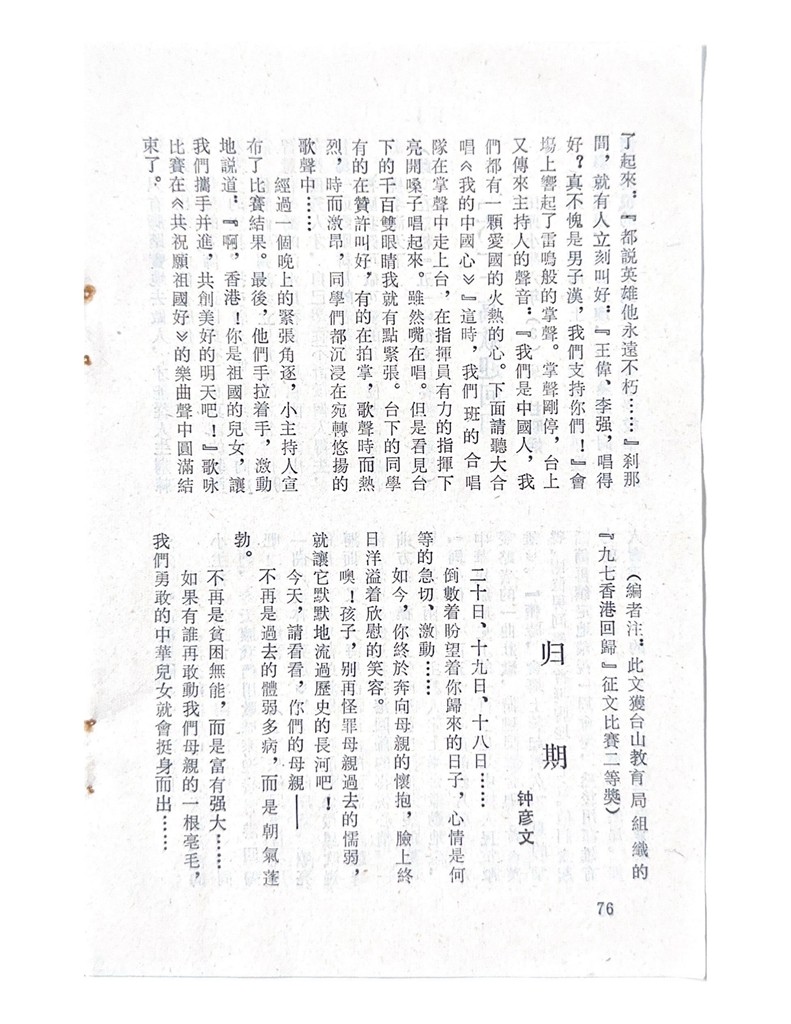 了起來：『都說英雄他永遠不朽……』刹那
間，就有人立刻叫好：『王偉、李强，唱得
好？真不愧是男子漢，我們支持你們！』會
場上響起了雷鳴般的掌聲。掌聲剛停，台上
又傳來主持人的聲音：『我們是中國人，我
們都有一顆愛國的火熱的心。下面請聽大合
唱《我的中國心》』這時，我們班的合唱
隊在掌聲中走上台，在指揮員有力的指揮下
亮開嗓子唱起來。雖然嘴在唱。但是看見台
下的千百雙眼睛我就有點緊張。台下的同學
有的在贊許叫好，有的在拍掌，歌聲時而熱
烈，時而激昂，同學們都沉浸在宛轉悠揚的
歌聲中……
經過一個晚上的緊張角逐，小主持人宣
布了比賽結果。最後，他們手拉着手，激動
地説道：『啊，香港！你是祖國的兒女，讓
我們攜手并進，共創美好的明天吧！』歌咏
比賽在《共祝願祖國好》的樂曲聲中圓滿結
束了。
（編者注：此文獲台山教育局組織的
『九七香港回歸』征文比賽二等獎）
归期
钟彦文
二十日、十九日、十八日……
倒數着盼望着你歸來的日子，心情是何
等的急切、激動……
如今，你終於奔向母親的懷抱，臉上終
日洋溢着欣慰的笑容。
噢！孩子，别再怪罪母親過去的懦弱，
就讓它默默地流過歷史的長河吧！
今天，請看看，你們的母親——
不再是過去的體弱多病，而是朝氣蓬
勃。
不再是貧困無能，而是富有强大……
如果有誰再敢動我們母親的一根毫毛，
我們勇敢的中華兒女就會挺身而出……
76